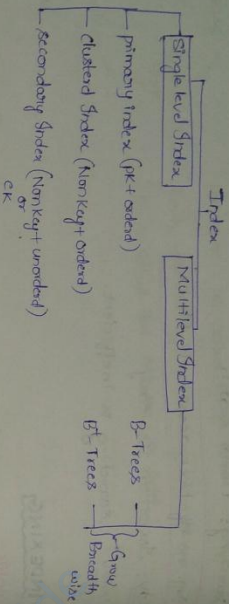 Index
Single level Index
Multilevel Index
primary index (PK + orderd)
clusterd Index (Nonkey + orderd)
secondary Index (Nonkey + unorderd)
or
CK
B-Trees
B+ Trees
Grow
Breadth
wise